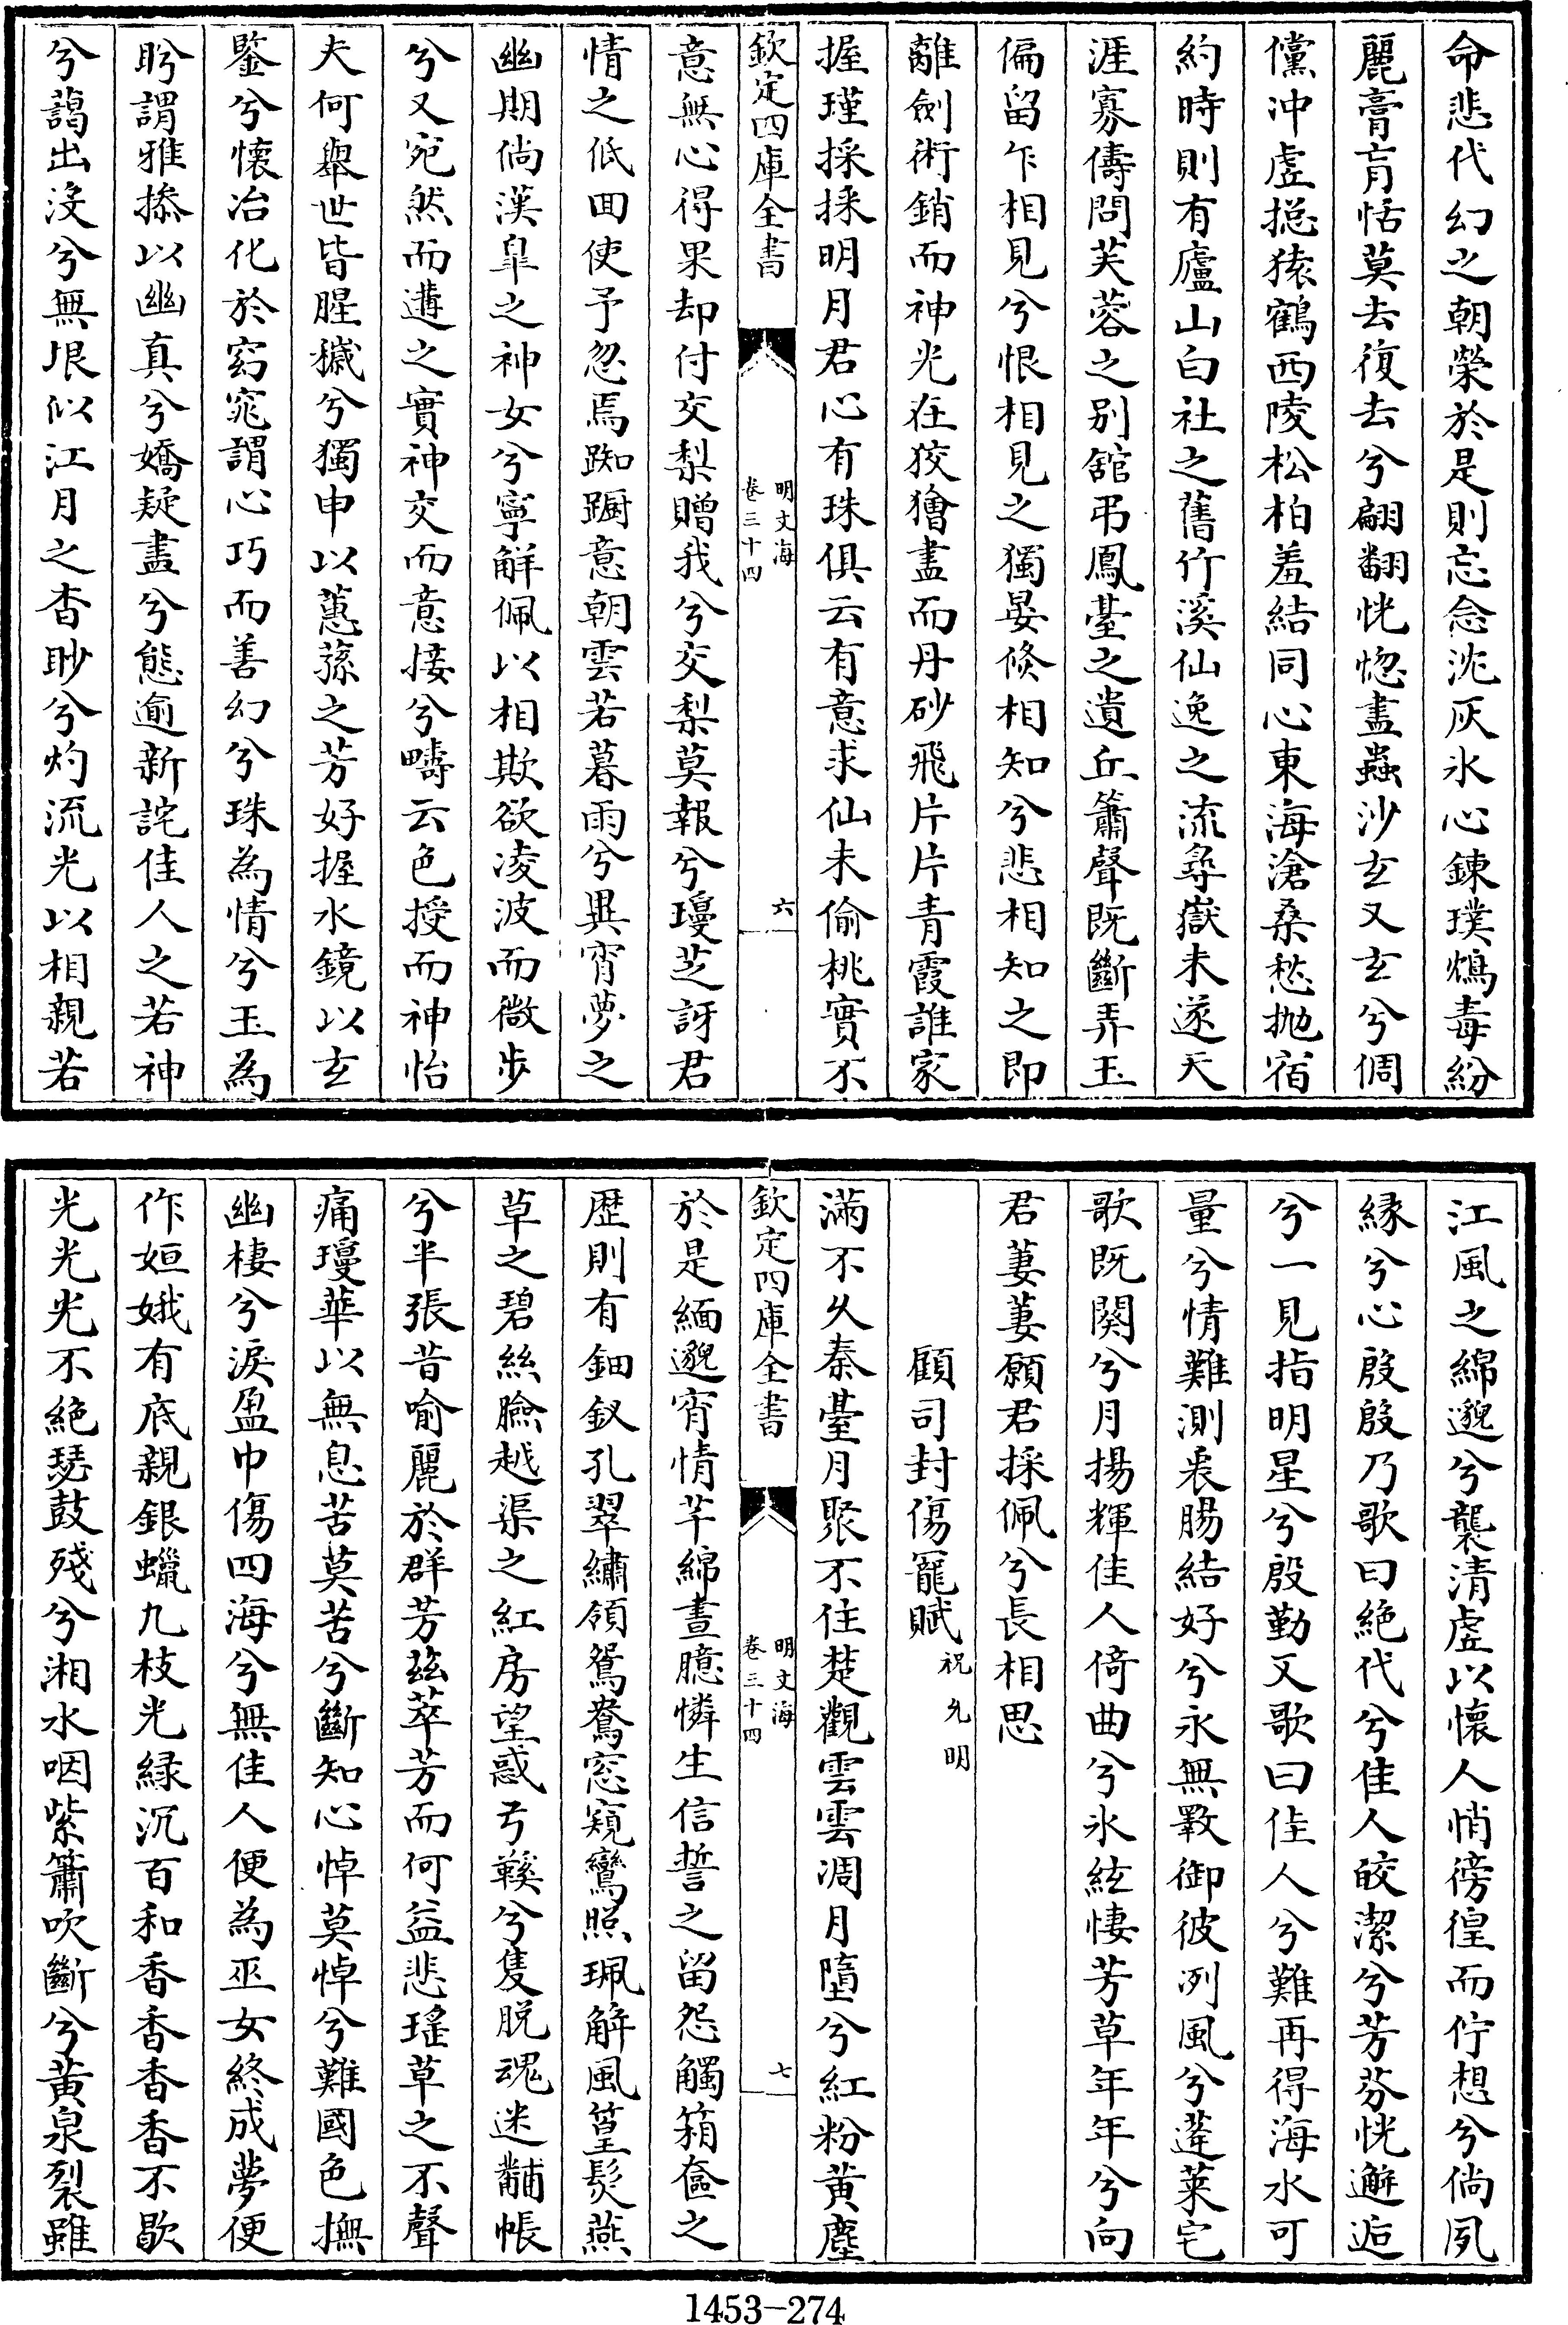 命悲代幻之朝榮於是則忘念沈灰氷心鍊璞鴆毒紛
麗膏肓恬莫去復去兮翩翻恍惚盡蟲沙玄又玄兮倜
儻沖虛搃猿鶴西陵松柏羞結同心東海滄桑愁抛宿
約時則有廬山白社之舊竹溪仙逸之流尋嶽未遂天
涯寡儔問芙蓉之别舘弔鳳臺之遺丘簫聲既斷弄玉
偏留乍相見兮恨相見之獨晏倐相知兮悲相知之即
離劍術銷而神光在狡獪盡而丹砂飛片片青霞誰家
握瑾採採明月君心有珠俱云有意求仙未偷桃實不
欽定四庫全書
明文海
卷三十四
六
意無心得果却付交梨贈我兮交梨莫報兮瓊芝訝君
情之低回使予忽焉踟蹰意朝雲若暮雨兮異宵夢之
幽期倘漢臯之神女兮寧解佩以相欺欲凌波而微步
兮又宛然而遘之實神交而意接兮疇云色授而神怡
夫何舉世皆腥穢兮獨申以蕙蓀之芳好握水鏡以玄
鑒兮懷冶化於窈窕謂心巧而善幻兮珠為情兮玉為
盻謂雅摻以幽真兮嬌疑盡兮態逾新詫佳人之若神
兮藹出沒兮無垠似江月之杳眇兮灼流光以相親若
江風之綿邈兮襲清虛以懷人悄徬徨而佇想兮倘夙
緣兮心殷殷乃歌曰絶代兮佳人皎潔兮芳芬恍邂逅
兮一見指明星兮殷勤又歌曰佳人兮難再得海水可
量兮情難測裊腸結好兮永無斁御彼冽風兮蓬萊宅
歌既闋兮月揚輝佳人倚曲兮氷絃悽芳草年年兮向
君萋萋願君採佩兮長相思
顧司封傷寵賦祝允明
滿不乆秦臺月聚不住楚觀雲雲凋月墮兮紅粉黄塵
欽定四庫全書
明文海
卷三十四
七
於是緬邈宵情芊綿晝臆憐生信誓之留怨觸箱奩之
歴則有鈿釵孔翠繡領鴛鴦窓窺鸞照珮解風篁髣燕
草之碧絲臉越渠之紅房望惑弓鞵兮隻脱魂迷黼帳
兮半張昔喻麗於群芳兹萃芳而何益悲瑤草之不聲
痛瓊華以無息苦莫苦兮斷知心悼莫悼兮難國色撫
幽棲兮淚盈巾傷四海兮無佳人便為巫女終成夢便
作姮娥有底親銀蠟九枝光緑沉百和香香香香不歇
光光光不絶瑟鼓殘兮湘水咽紫簫吹斷兮黄泉裂雖
1453-274